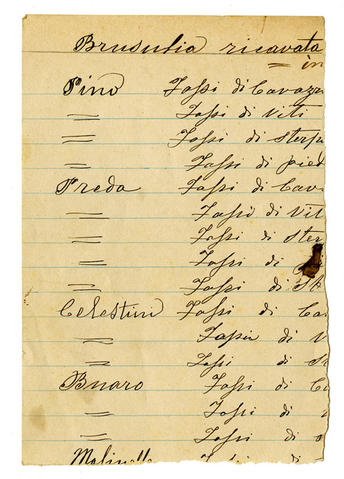 Brusulia ricavata
= in
Pino Fassi di Cavazz
= Fassi di Viti
= Fassi di sterp
= Fassi di pied
Freda Fassi di Cav
= Fassi di Vit
= Fassi di ster
= Fassi di
= Fassi di
Celestini Fassi di Ca
= Fassi di V
= Fassi di st
Bnaro Fassi di C
= Fassi di
= Fassi di
Molinella